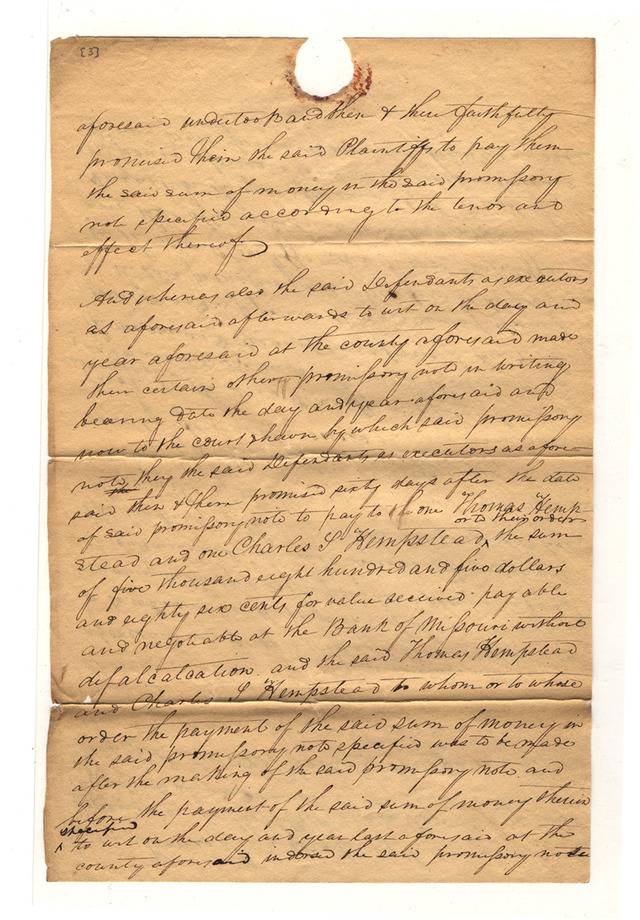 [3]
aforesaid undertook and then & there faithfully
promised them the said Plaintiffs to pay them
the said sum of money in the said promissory
note specified according to the tenor and
effect thereof
And whereas also the said Defendants as executors
as aforesaid afterwards to wit on the day and
year aforesaid at the county aforesaid made
their certain other promissory note in writing
bearing date the day and year aforesaid and
now to the court shewn by which said promissory
note they the said Defendants as executors as afore-
said then & there promised sixty days after the date
of said promissory note to pay to one Thomas Hemp-
or to their order
stead and one Charles S Hempstead ^ the sum
of five thousand eight hundred and five dollars
and eighty six cents for value received payable
and negotiable at the Bank of Missouri without
defalcation and the said Thomas Hempstead
and Charles S Hempstead to whom or to whose
order the payment of the said sum of money in
the said promissory note specified was to be made
after the making of the said promissory note and
before the payment of the said sum of money therein
specified
^ to wit on the day and year last aforesaid at the
county aforesaid indorsed the said promissory note